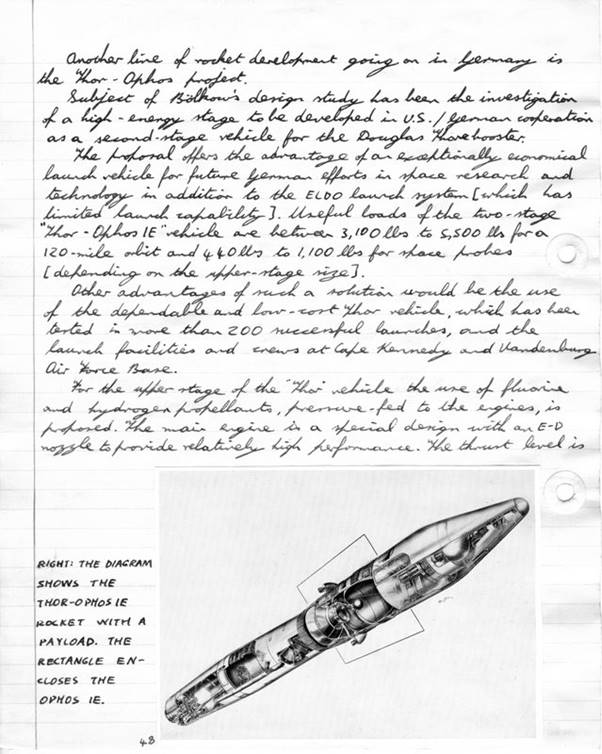 Another line of rocket development going on in Germany is
the Thor-Ophos project.
Subject of Bölkow's design study has been the investigation
of a high-energy stage to be developed in U.S./German cooperation
as a second-stage vehicle for the Douglas Thorbooster.
The proposal offers the advantage of an exceptionally economical
launch vehicle for future German efforts in space research and
technology in addition to the ELDO launch system [which has
limited launch capability]. Useful loads of the two-stage
"Thor-Ophos IE" vehicle are between 3,100 lbs to 5,500 lbs for a
120-mile orbit and 440 lbs to 1,100 lbs for space probes
[depending on the upper-stage size].
Other advantages of such a solution would be the use
of the dependable and low-cost Thor vehicle, which has been
tested in more than 200 successful launches, and the
launch facilities and crews at Cape Kennedy and Vandenburg
Air Force Base.
For the upper stage of the "Thor" vehicle the use of fluorine
and hydrogen propellants, pressure-fed to the engines, is
proposed. The main engine is a special design with an E-D
nozzle to provide relatively high performance. The thrust level is
RIGHT: THE DIAGRAM
SHOWS THE
THOR-OPHOS IE
ROCKET WITH A
PAYLOAD. THE
RECTANGLE EN-
CLOSES THE
OPHOS IE.
48